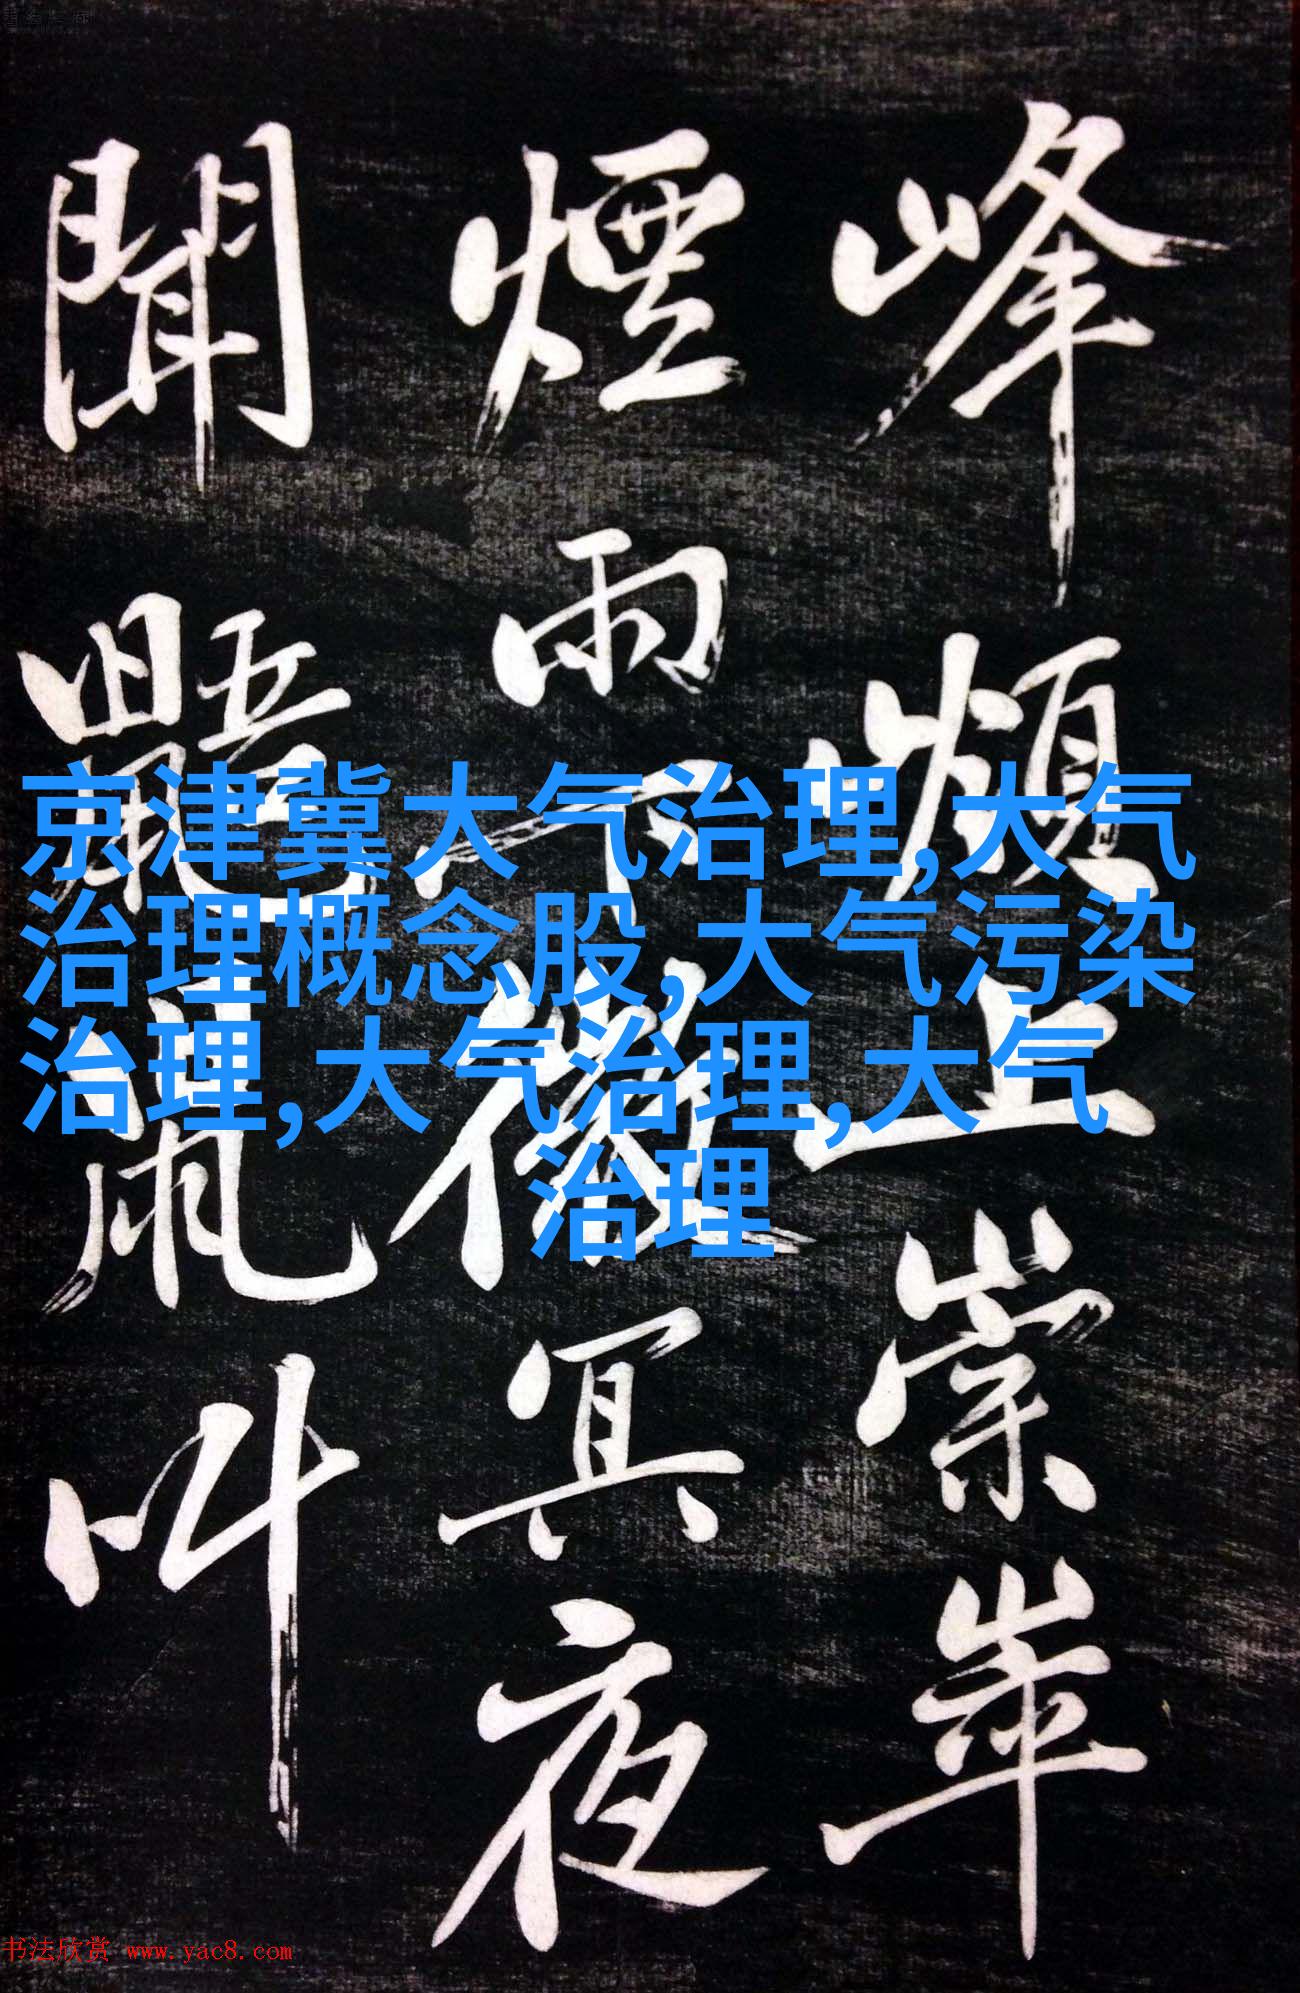 峰上崇崒
煙雨下微冥夜
聞鼯鼠叫
京津冀大气治理,大气
治理概念股,大气污染
治理,大气治理,大气
治理
书法欣赏 www.yac8.com